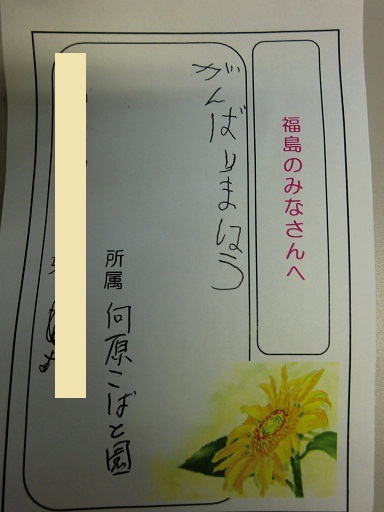 福島のみなさんへ
がんばりましょう
所属 向原こばと園